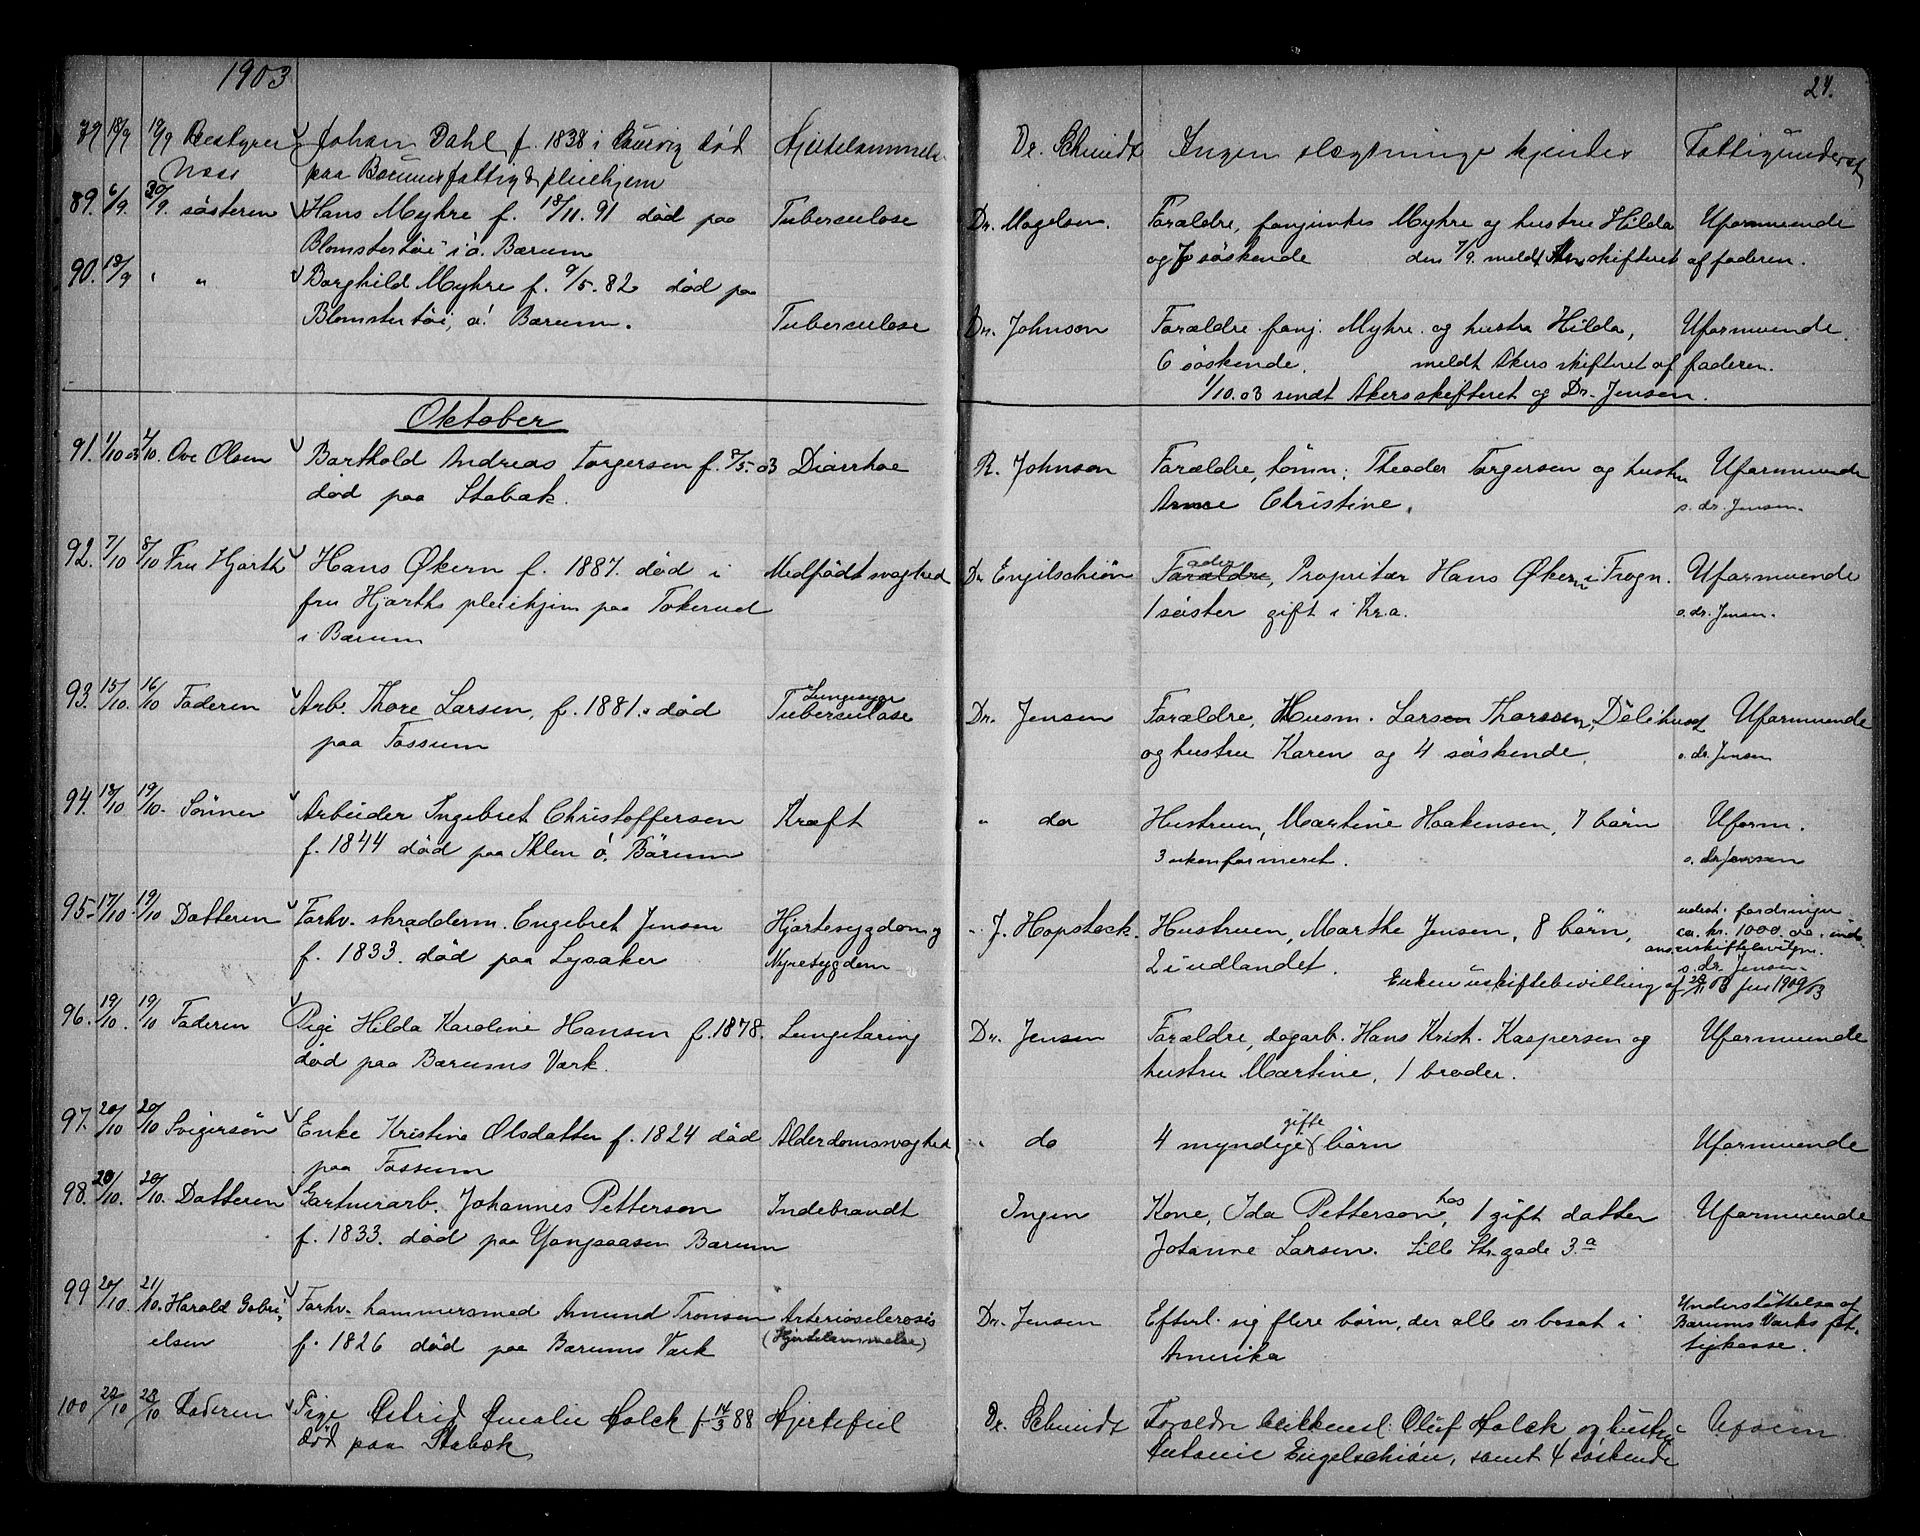 1903
24.
79 18/9 19/9 Bestyrer Johan Dahl f. 1838 i død Hjertelammelse Dr. Schmidt Ingen slægtninge kjendes Fattigunderst
Næss paa Bærums fattig & pleiehjem
89. 6/9. 20/9. søsteren Hans Myhre f. 18/11. 91 død paa Tuberculose Dr. Magelsen. Forældre, Myhre og hustru Hilda Uformuende
Blomstertøi i ø. Bærum og 7 søskende den 7/9. meldt skifteret af faderen.
90. 18/9 " " Borghild Myhre f. 9/5. 82 død paa
Blomstertøi, ø. Bærum. Tuberculose Dr. Johnson Forældre fanj. Myhre og hustru Hilda, Uformuende.
6 søskende. meldt Akers skifteret af faderen.
1/10. 03 sendt Akers skifteret og Dr. Jensen.
Oktober
91. 1/10 03 2/10. Ove Olsen Barthold Andreas Torgersen f. 8/5. 03 Diarrhoe R. Johnson Forældre, tømm. Theodor Torgersen og hustru Uformuende
død paa Stabæk. Anne Christine. s. dr. Jensen.
92. 7/10 8/10 Fru Hjorth Hans Økern f. 1887. død i Medfødt svaghed Dr Engelschiøn Forældre ader, Propritær Hans Økern i Frogn. Uformuende
fru Hjorths pleiehjem paa Tokerud 1 søster gift i Kr.a. s. dr. Jensen.
i Bærum
93. 15/10. 16/10 Faderen Arb. Thore Larsen, f. 1881. død Lungesyge Tuberculose Dr. Jensen Forældre, Husm. Larsen Thorssen, Dælihuset Uformuende
paa Fossum og hustru Karen og 4 søskende. s. dr. Jensen
94. 18/10 19/10. Sønnen Arbeider Ingebret Christoffersen Kræft " do Hustruen, Martine Haakensen, 7 børn Uform.
f. 1844 død paa ø. Bærum 3 ukonfirmeret. s. dr Jensen
95. 17/10. 19/10 Datteren Forhv. skrædderm. Engebret Jensen Hjertesygdom og " J. Hopstock. Hustruen, Marthe Jensen, 8 børn, udest. fordringer
f. 1833. død paa Lysaker Nyresygdom 2 i udlandet. ca. kr. 1000.00. inds.
ans. uskiftebevilgn.
s. dr. Jensen.
Enken uskiftebevilling af 20/11 03 Jur 1909/03
96. 19/10. 19/10 Faderen Pige Hilda Karoline Hansen f. 1878. Lungetæring Dr. Jensen Forældre, dagarb. Hans Krist. Kaspersen og Uformuende
død paa Bærums Værk. hustru Martine, 1 broder.
97. 20/10 20/10 Svigersøn Enke Kristine Olsdatter f. 1824 død Alderdomssvaghed " do 4 myndige gifte børn Uformuende
paa Fossum
98. 20/10. 20/10. Datteren Gartnerarb. Johannes Petterson Indebrandt Ingen Kone, Ida Petterson, hos 1 gift datter Uformuende
f. 1833. død paa Bærum Johanne Larsen. Lille Str. gade 3.a
99 20/10. 21/10. Harald Gabri Forhv. hammersmed Amund Tronsen Arteriosclerosis Dr. Jensen Efterl. sig flere børn, der alle er bosat i Understøttelse af
elsen f. 1826 død paa Bærums Værk (Hjertelammelse) Amerika Bærums Værks fat-
tigkasse.
100 22/10 23/10 Faderen Pige Astrid Amalie Holck f. 14/3 88 Hjertefeil Dr. Schmidt Forældre blikkensl. Oluf Holck og hustru Uform
død paa Stabæk Antonie Engelschiøn, samt 4 søskende